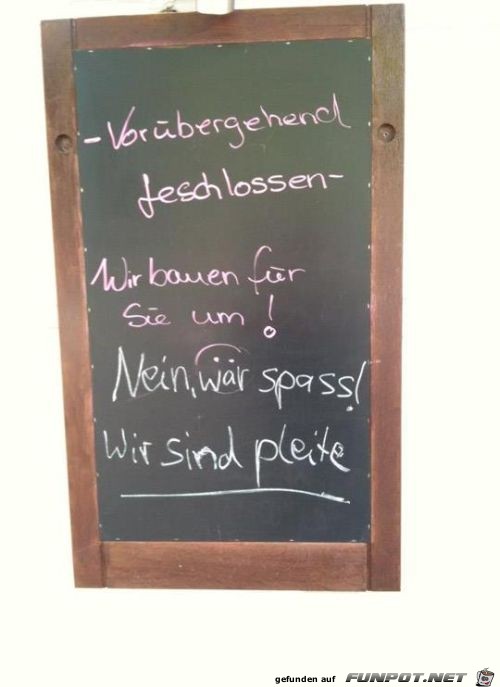 -Vorübergehend
geschlossen-
Wir bauen für
Sie um!
Nein, wär spass!
Wir sind pleite
gefunden auf FUNPOT.NET